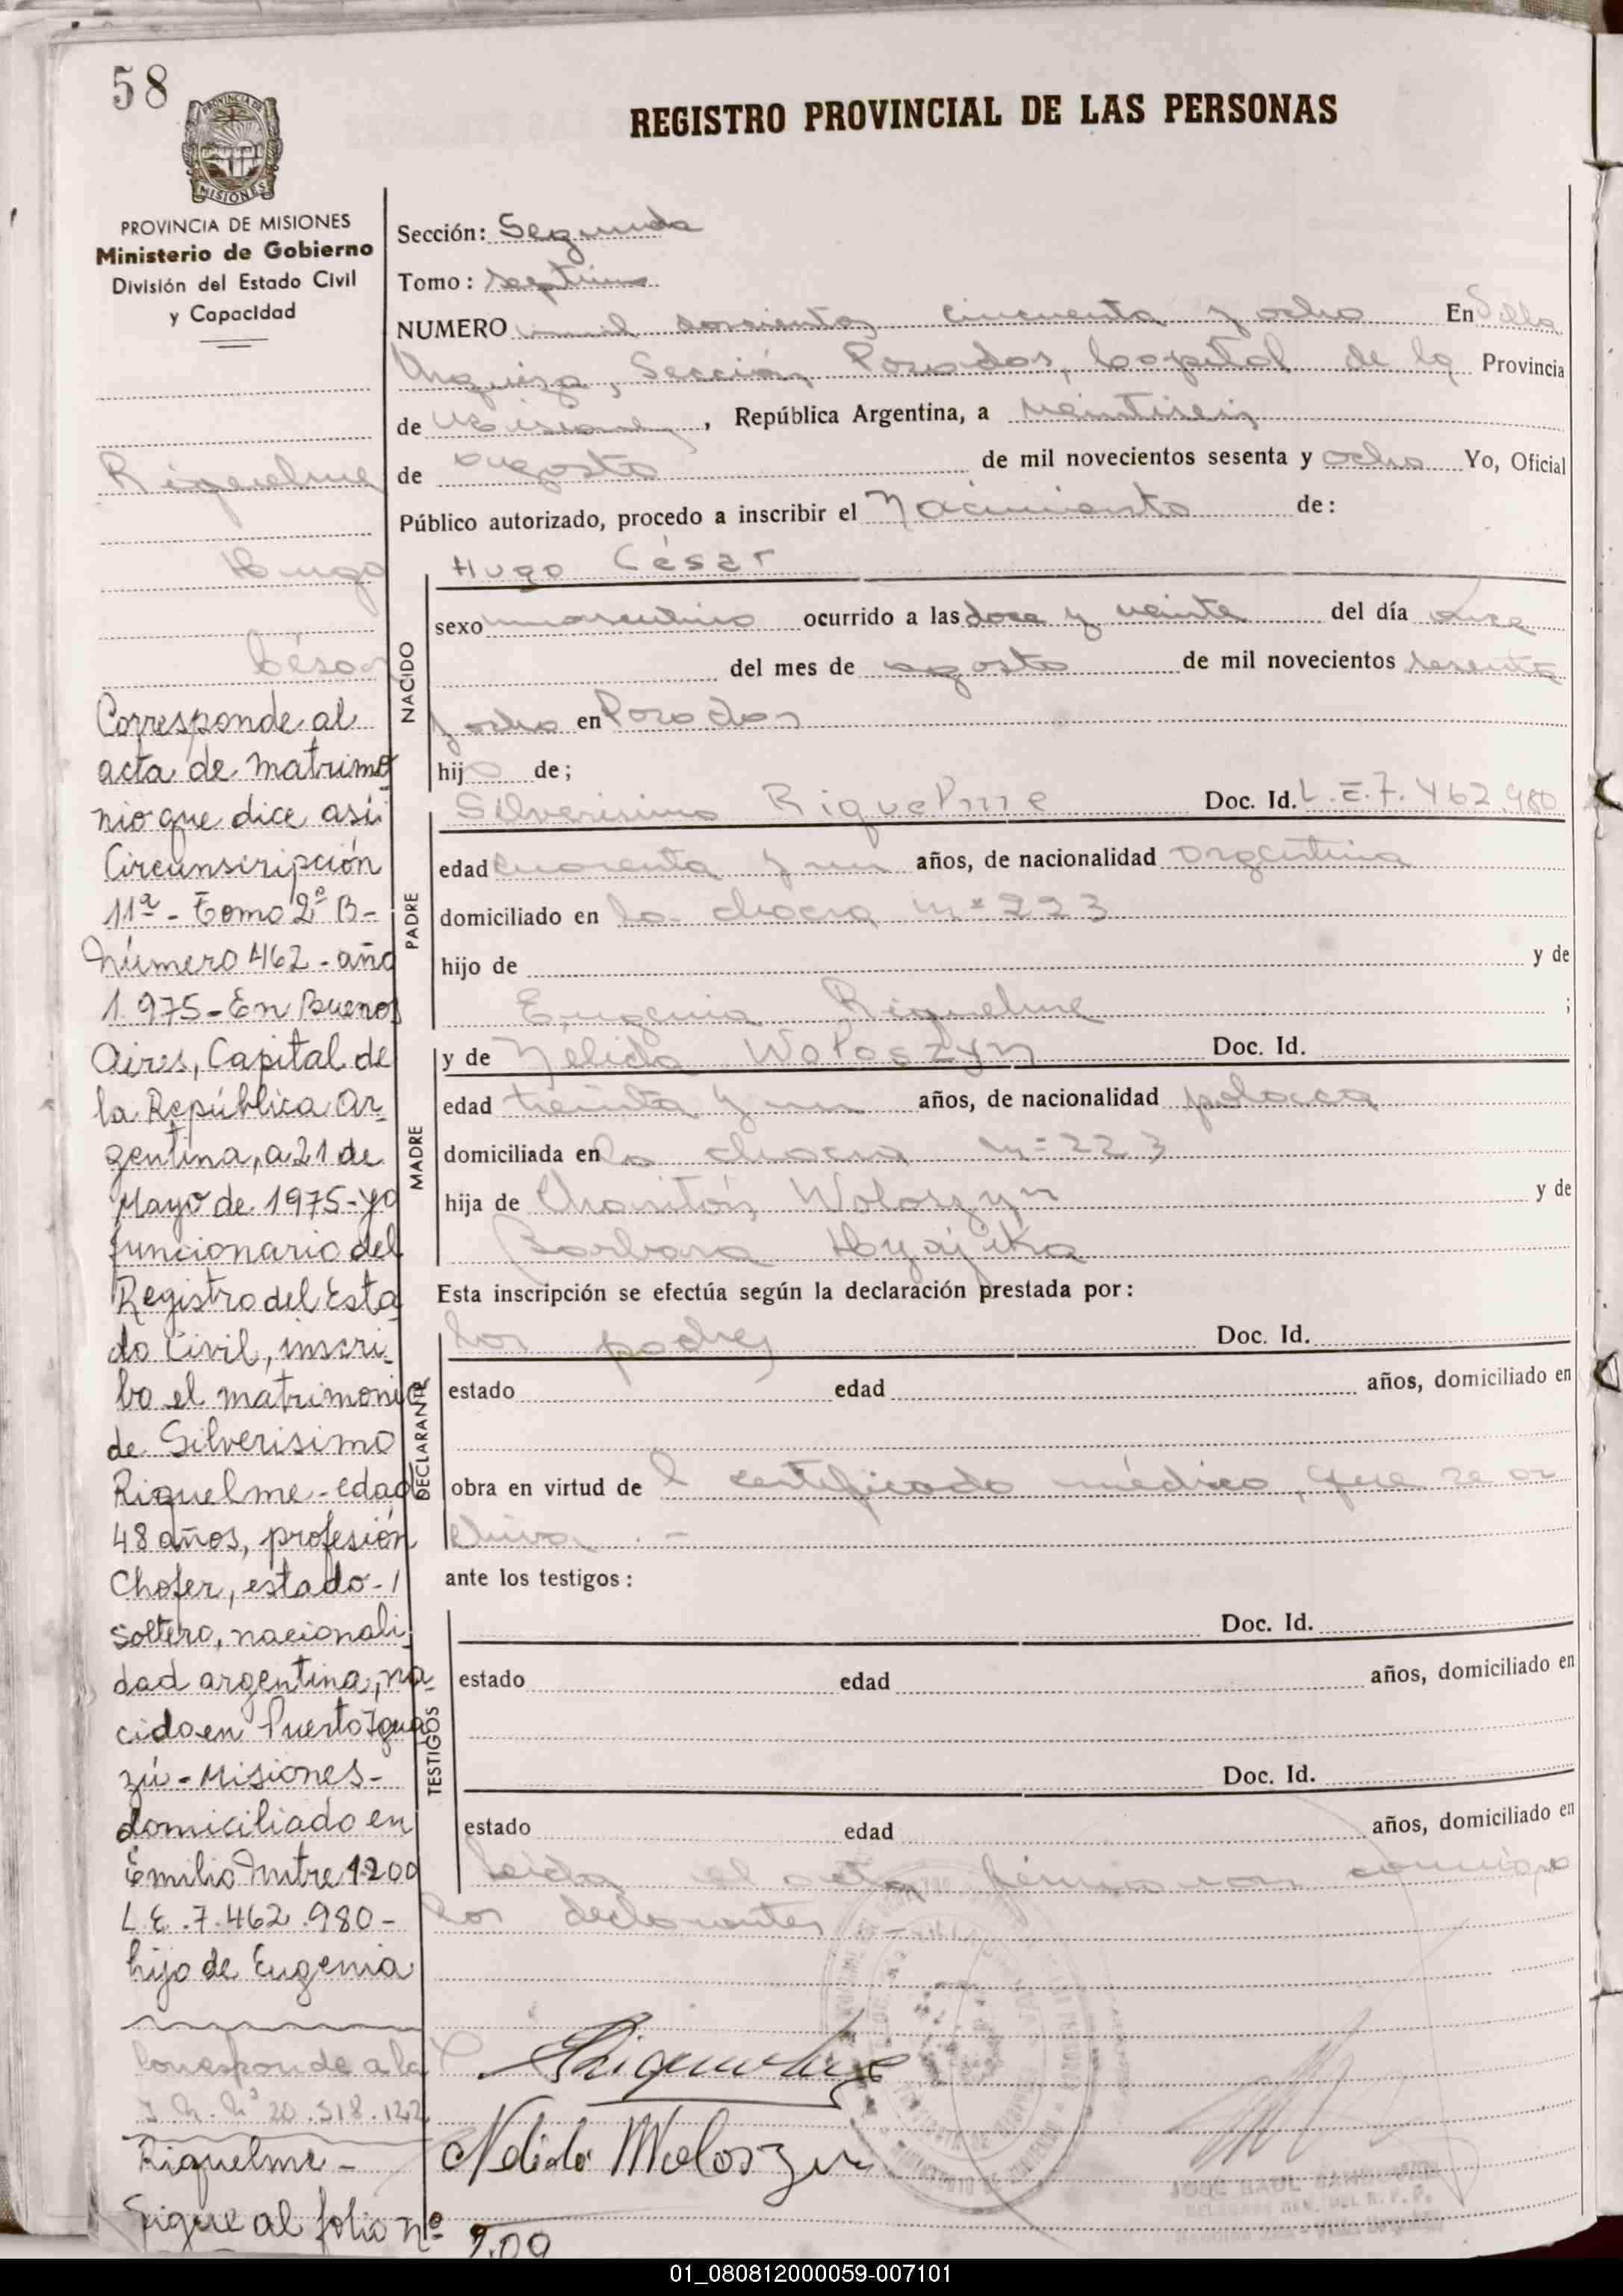 58
REGISTRO PROVINCIAL DE LAS PERSONAS
PROVINCIA DE MISIONES
Ministerio de Gobierno
División del Estado Civil
y Capacidad
Riquelme
Hugo
César
Corresponde al
acta de matrimo
nio que dice así:
Circunscripción
11ª - Tomo 2º B-
Número 462 - año
1.975 - En Buenos
Aires, Capital de
la República Ar-
gentina, a 21 de
Mayo de 1975 - yo
funcionario del
Registro del Esta
do Civil, inscri-
bo el matrimonio
de Silverisimo
Riquelme - edad
48 años, profesión
Chofer, estado -
soltero, nacionali
dad argentina, na-
cido en Puerto Igua
zú - Misiones -
domiciliado en
Emilio Mitre 1200
L.E. 7.462.980 -
hijo de Eugenia
Corresponde a la
20.518.122
Riquelme -
Sigue al folio nº 209
Sección: Segunda
Tomo: septimo
NUMERO mil seiscientos cincuenta y ocho En Villa
Urquiza, Sección Posadas, Capital de la Provincia
de Misiones, República Argentina, a veintiseis
de agosto de mil novecientos sesenta y ocho Yo, Oficial
Público autorizado, procedo a inscribir el Nacimiento de:
Hugo César
NACIDO
sexo masculino ocurrido a las doce y veinte del día once
del mes de agosto de mil novecientos sesenta
y ocho en Posadas
hijo de;
PADRE
Silverisimo Riquelme Doc. Id. L.E. 7.462.980
edad cuarenta y un años, de nacionalidad argentina
domiciliado en la chacra nº 223
hijo de y de
Eugenia Riquelme ;
MADRE
y de Nelida Woloszyn Doc. Id.
edad treinta y un años, de nacionalidad polaca
domiciliada en la chacra nº 223
hija de Charitón Woloszyn y de
Barbara
Esta inscripción se efectúa según la declaración prestada por:
DECLARANTE
los padres Doc. Id.
estado edad años, domiciliado en
obra en virtud de l certificado médico, que se ar
chiva . -
ante los testigos:
TESTIGOS
Doc. Id.
estado edad años, domiciliado en
Doc. Id.
estado edad años, domiciliado en
Leida el acta firmaron conmigo
los declarantes -
Riquelme
Nelida Woloszyn
JOSE RAUL
01_080812000059-007101